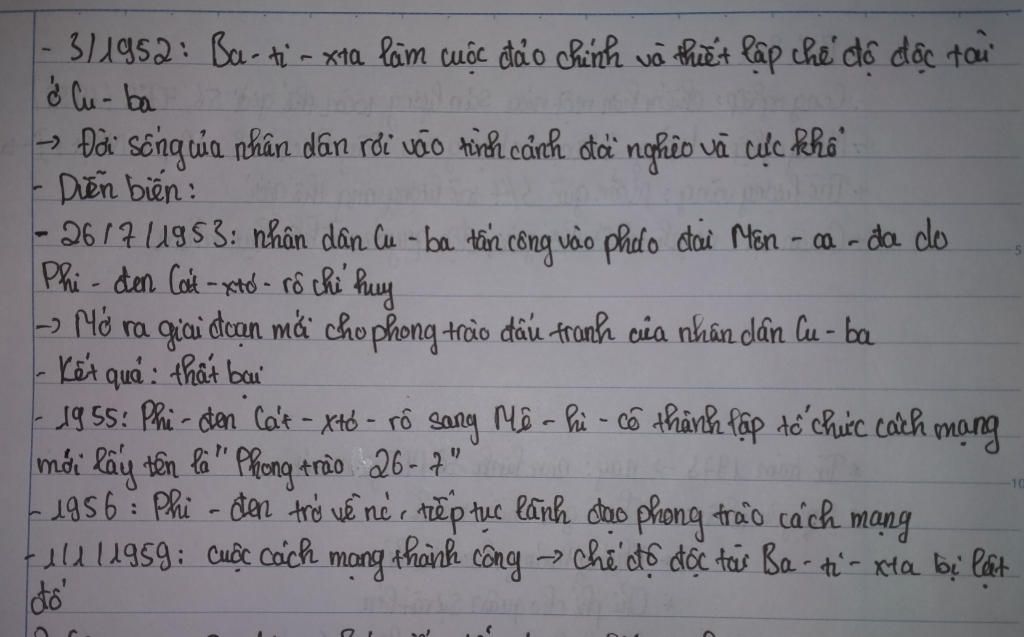 - 3/1952: Ba - ti - xta làm cuộc đảo chính và thiết lập chế độ độc tài
ở Cu - ba
→ Đời sống của nhân dân rơi vào tình cảnh đói nghèo và cực khổ
- Diễn biến:
- 26/7/1953: nhân dân Cu - ba tấn công vào pháo đài Môn - ca - đa do
Phi - đen Cát - xtơ - rô chỉ huy
→ Mở ra giai đoạn mới cho phong trào đấu tranh của nhân dân Cu - ba
- Kết quả: thất bại
- 1955: Phi - đen Cát - xtơ - rô sang Mê - hi - cô thành lập tổ chức cách mạng
mới lấy tên là " Phong trào 26 - 7"
- 1956: Phi - đen trở về nc, tiếp tục lãnh đạo phong trào cách mạng
- 1/1/1959: cuộc cách mạng thành công → chế độ độc tài Ba - ti - xta bị lật
đổ